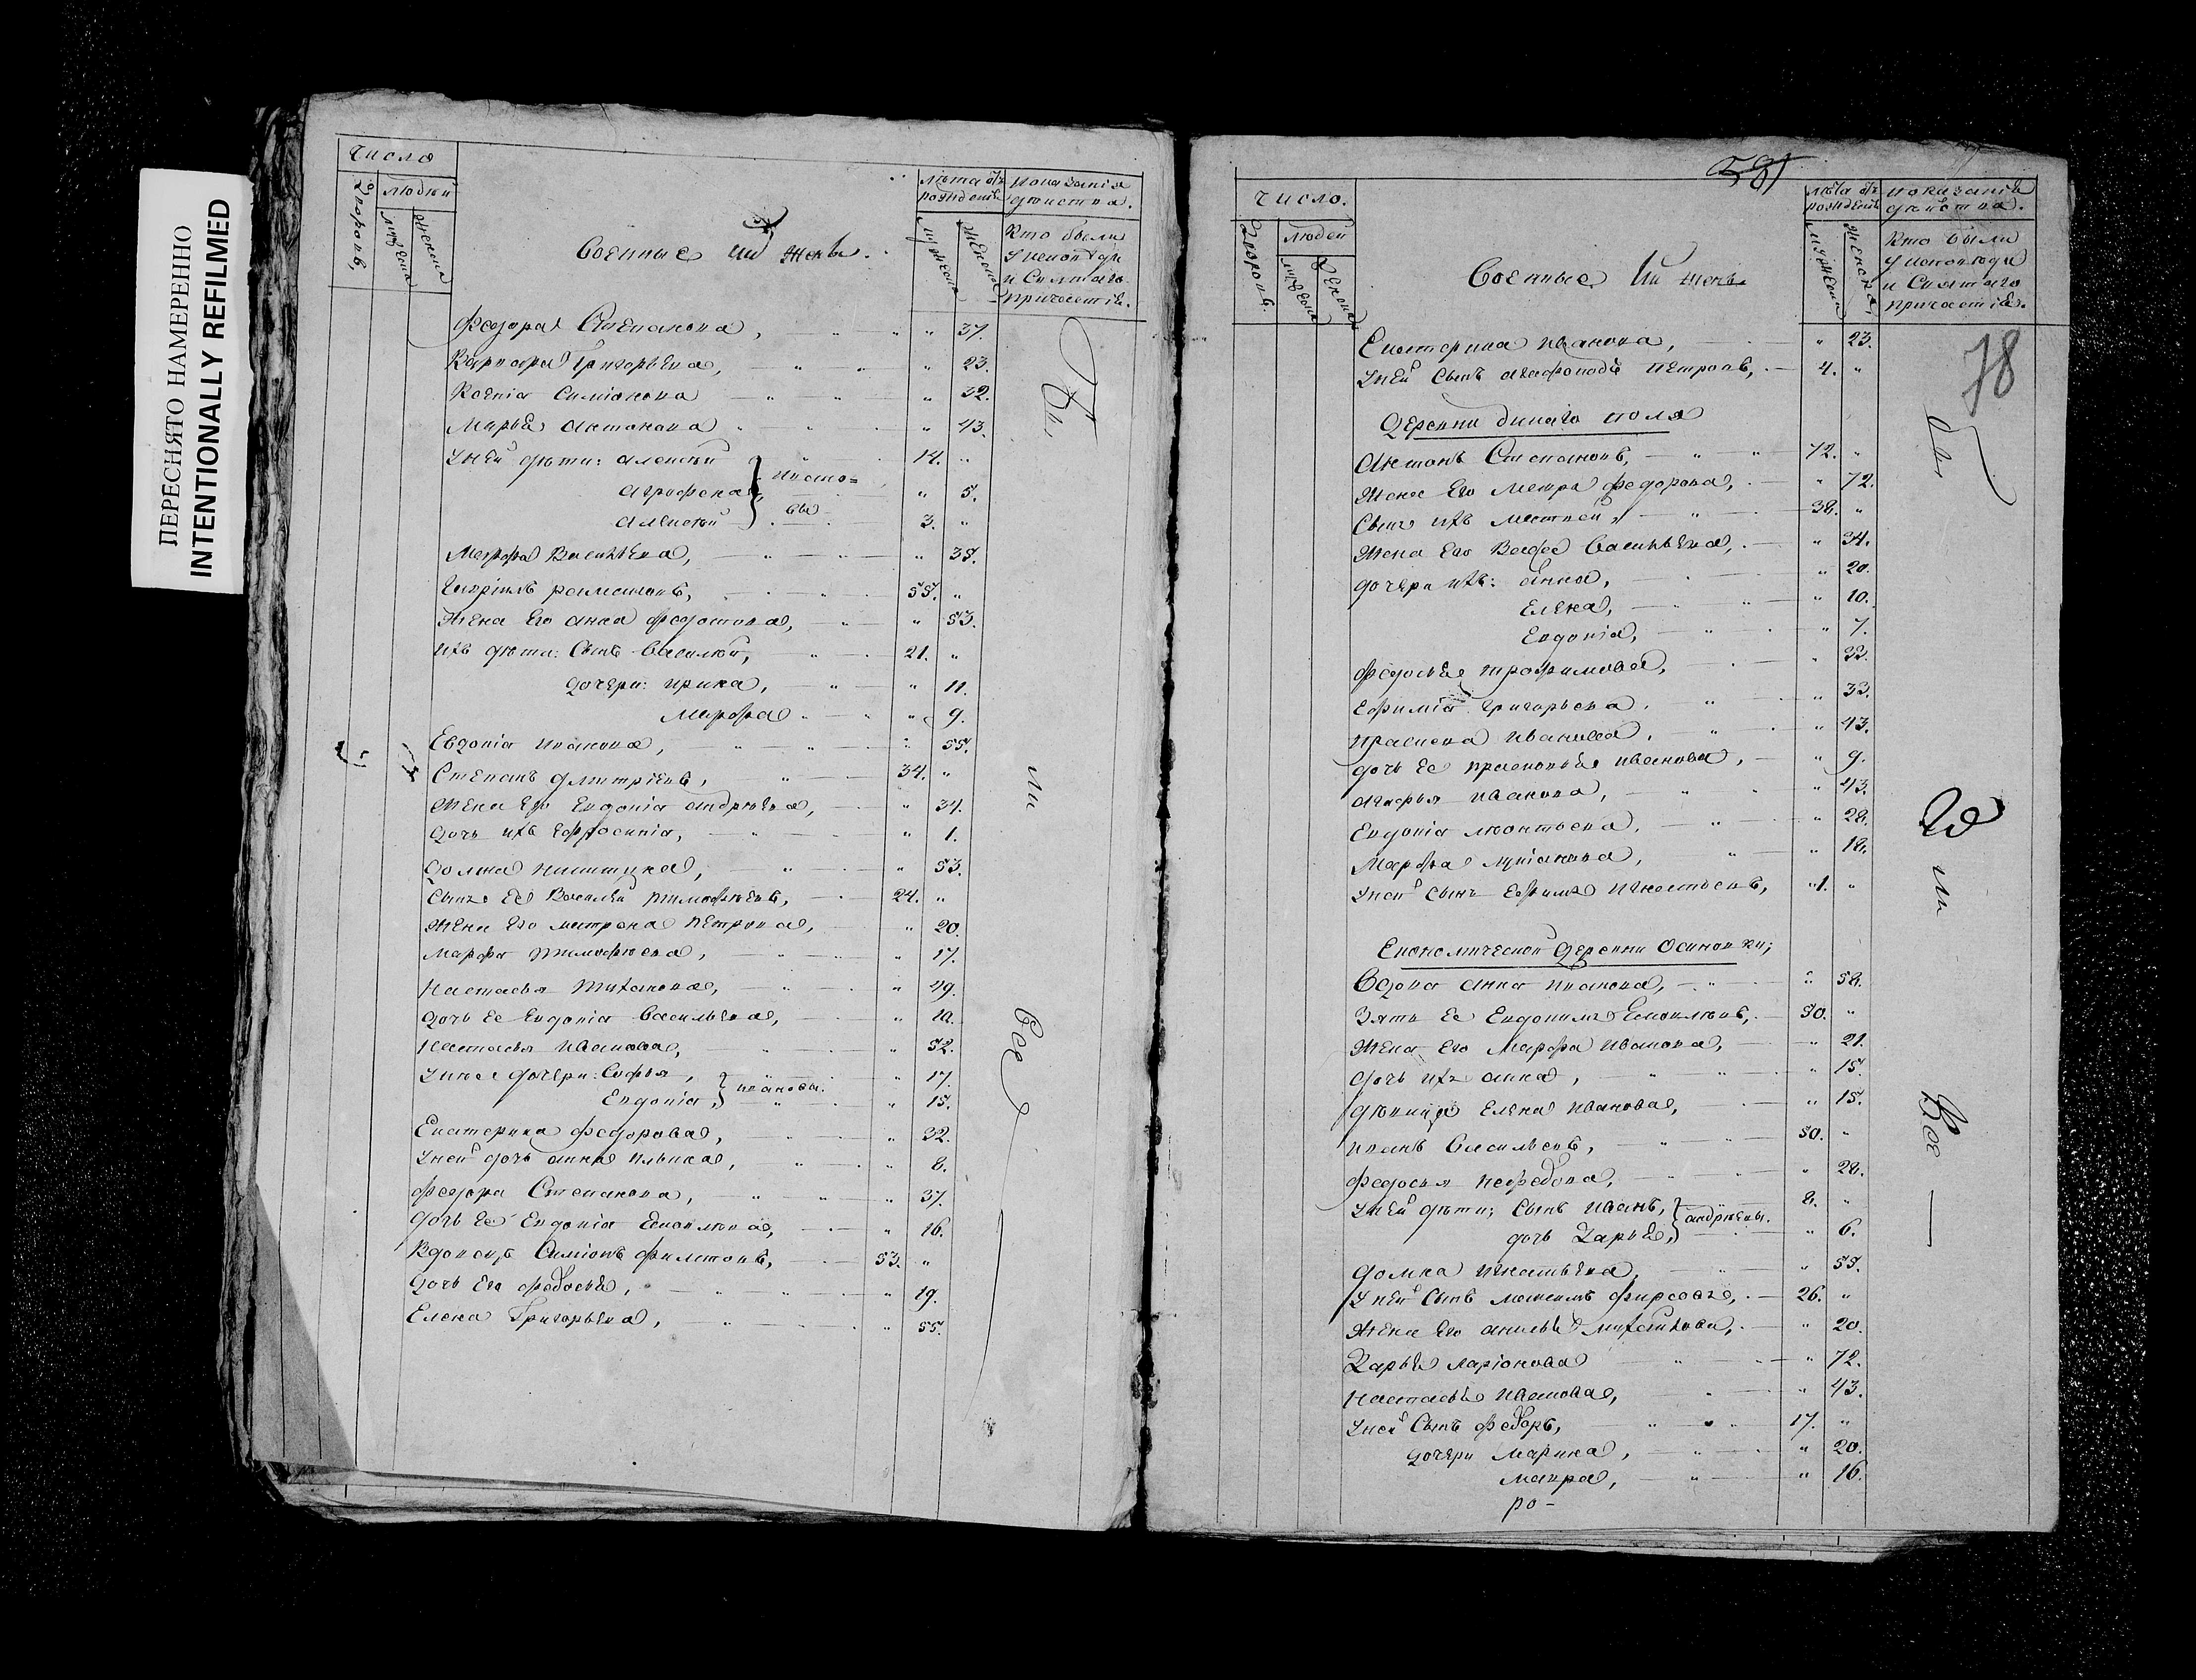 ПЕРЕСНЯТО НАМЕРЕННО
INTENTIONALLY REFILMED
Число
Дворовъ,
людей
мужеска
женска
Военные ии жены.
лѣта отъ рожденія
мужеска
женска
показанія дѣйства.
Кто были
у исповѣди
и Святаго
причастія.
Федора Степанова, " 37.
Варвара Григорьева, " 23.
Ксенія Симіонова " 32.
Марья Антонова " 43.
У ней дѣти: Алексѣй 14. "
Агрифена, " 5.
Алексѣй 3. "
Ивано=
вы
Марфа Васильева, " 38.
Гавріилъ Романовъ, 55. "
Жена Его Анна Федотова, " 53.
ихъ дѣти: Сынъ Василѣй, 21. "
дочери: Ирина, " 11.
Марфа " 9.
Евдокія Иванова, " 55.
Степанъ Дмитріевъ, 34. "
Жена Его Евдокія Андрѣева, " 34.
дочь ихъ Ефросинія, " 1.
Домна Никитина, " 53.
Сынъ Ее Василѣй Тимофѣевъ, 24. "
Жена Его Матрона Петрова, " 20.
Марфа Тимофѣева, " 17.
Настасья Тиханова, " 49.
дочь Ее Евдокія Васильева, " 18.
Настасья Иванова, " 52.
У нее дочери: Софья, " 17.
Евдокія, " 15.
Иванова.
Екатерина Федорова, " 32.
У ней дочь Анна Ильина, " 8.
Федора Степанова, " 37.
дочь Ее Евдокія " 16.
Вдовецъ Симіонъ 53. "
дочь Его Федосья, " 19.
Елена Григорьева, " 55.
Бы
ли
Все
581
78
Число.
Дворовъ.
людей
мужеска
женска
Военные ии жены
лѣта отъ рожденія
мужеска
женска
показанія дѣйства.
Кто были
у исповѣди
и Святаго
причастія.
Екатерина Иванова, " 23.
У ней Сынъ Агафоподъ Петровъ, 4. "
Деревни Дикаго поля
Антонъ Степановъ, 72. "
Жена Его Мавра Федорова, " 72.
Сынъ ихъ Матвей, 38. "
Жена Его Васса Васильева, " 34.
дочери ихъ: Анна, " 20.
Елена, " 10.
Евдокія, " 7.
Федосья Трофимова, " 32.
Ефимія Григорьева, " 33.
Прасковья Иванова, " 43.
дочь Ее Прасковья Иванова, " 9.
Агафья Иванова, " 43.
Евдокія Леонтьева, " 28.
Марфа Лукіанова, " 18.
У ней Сынъ Ефимъ Игнатьевъ, 1. "
Економической деревни Осиновки;
Вдова Анна Иванова, " 58.
Зять Ее Евдокимъ 50. "
Жена Его Марфа Иванова, " 21.
дочь ихъ Анна, " 15.
дѣвица Елена Иванова, " 15.
Иванъ Васильевъ, 50. "
Федосья Нефедова, " 28.
У ней дѣти; Сынъ Иванъ, 8. "
дочь Дарья, " 6.
Андрѣевы.
Домна Игнатьева, " 55.
У ней Сынъ Максимъ Фирсовъ, 26. "
Жена Его Акилина Михайлова, " 20.
Дарья Ларіонова " 72.
Настасья Иванова, " 43.
У ней Сынъ Федоръ, 17. "
дочери Марина, " 20.
Мавра, " 16.
ро-
Бы
ли
Все